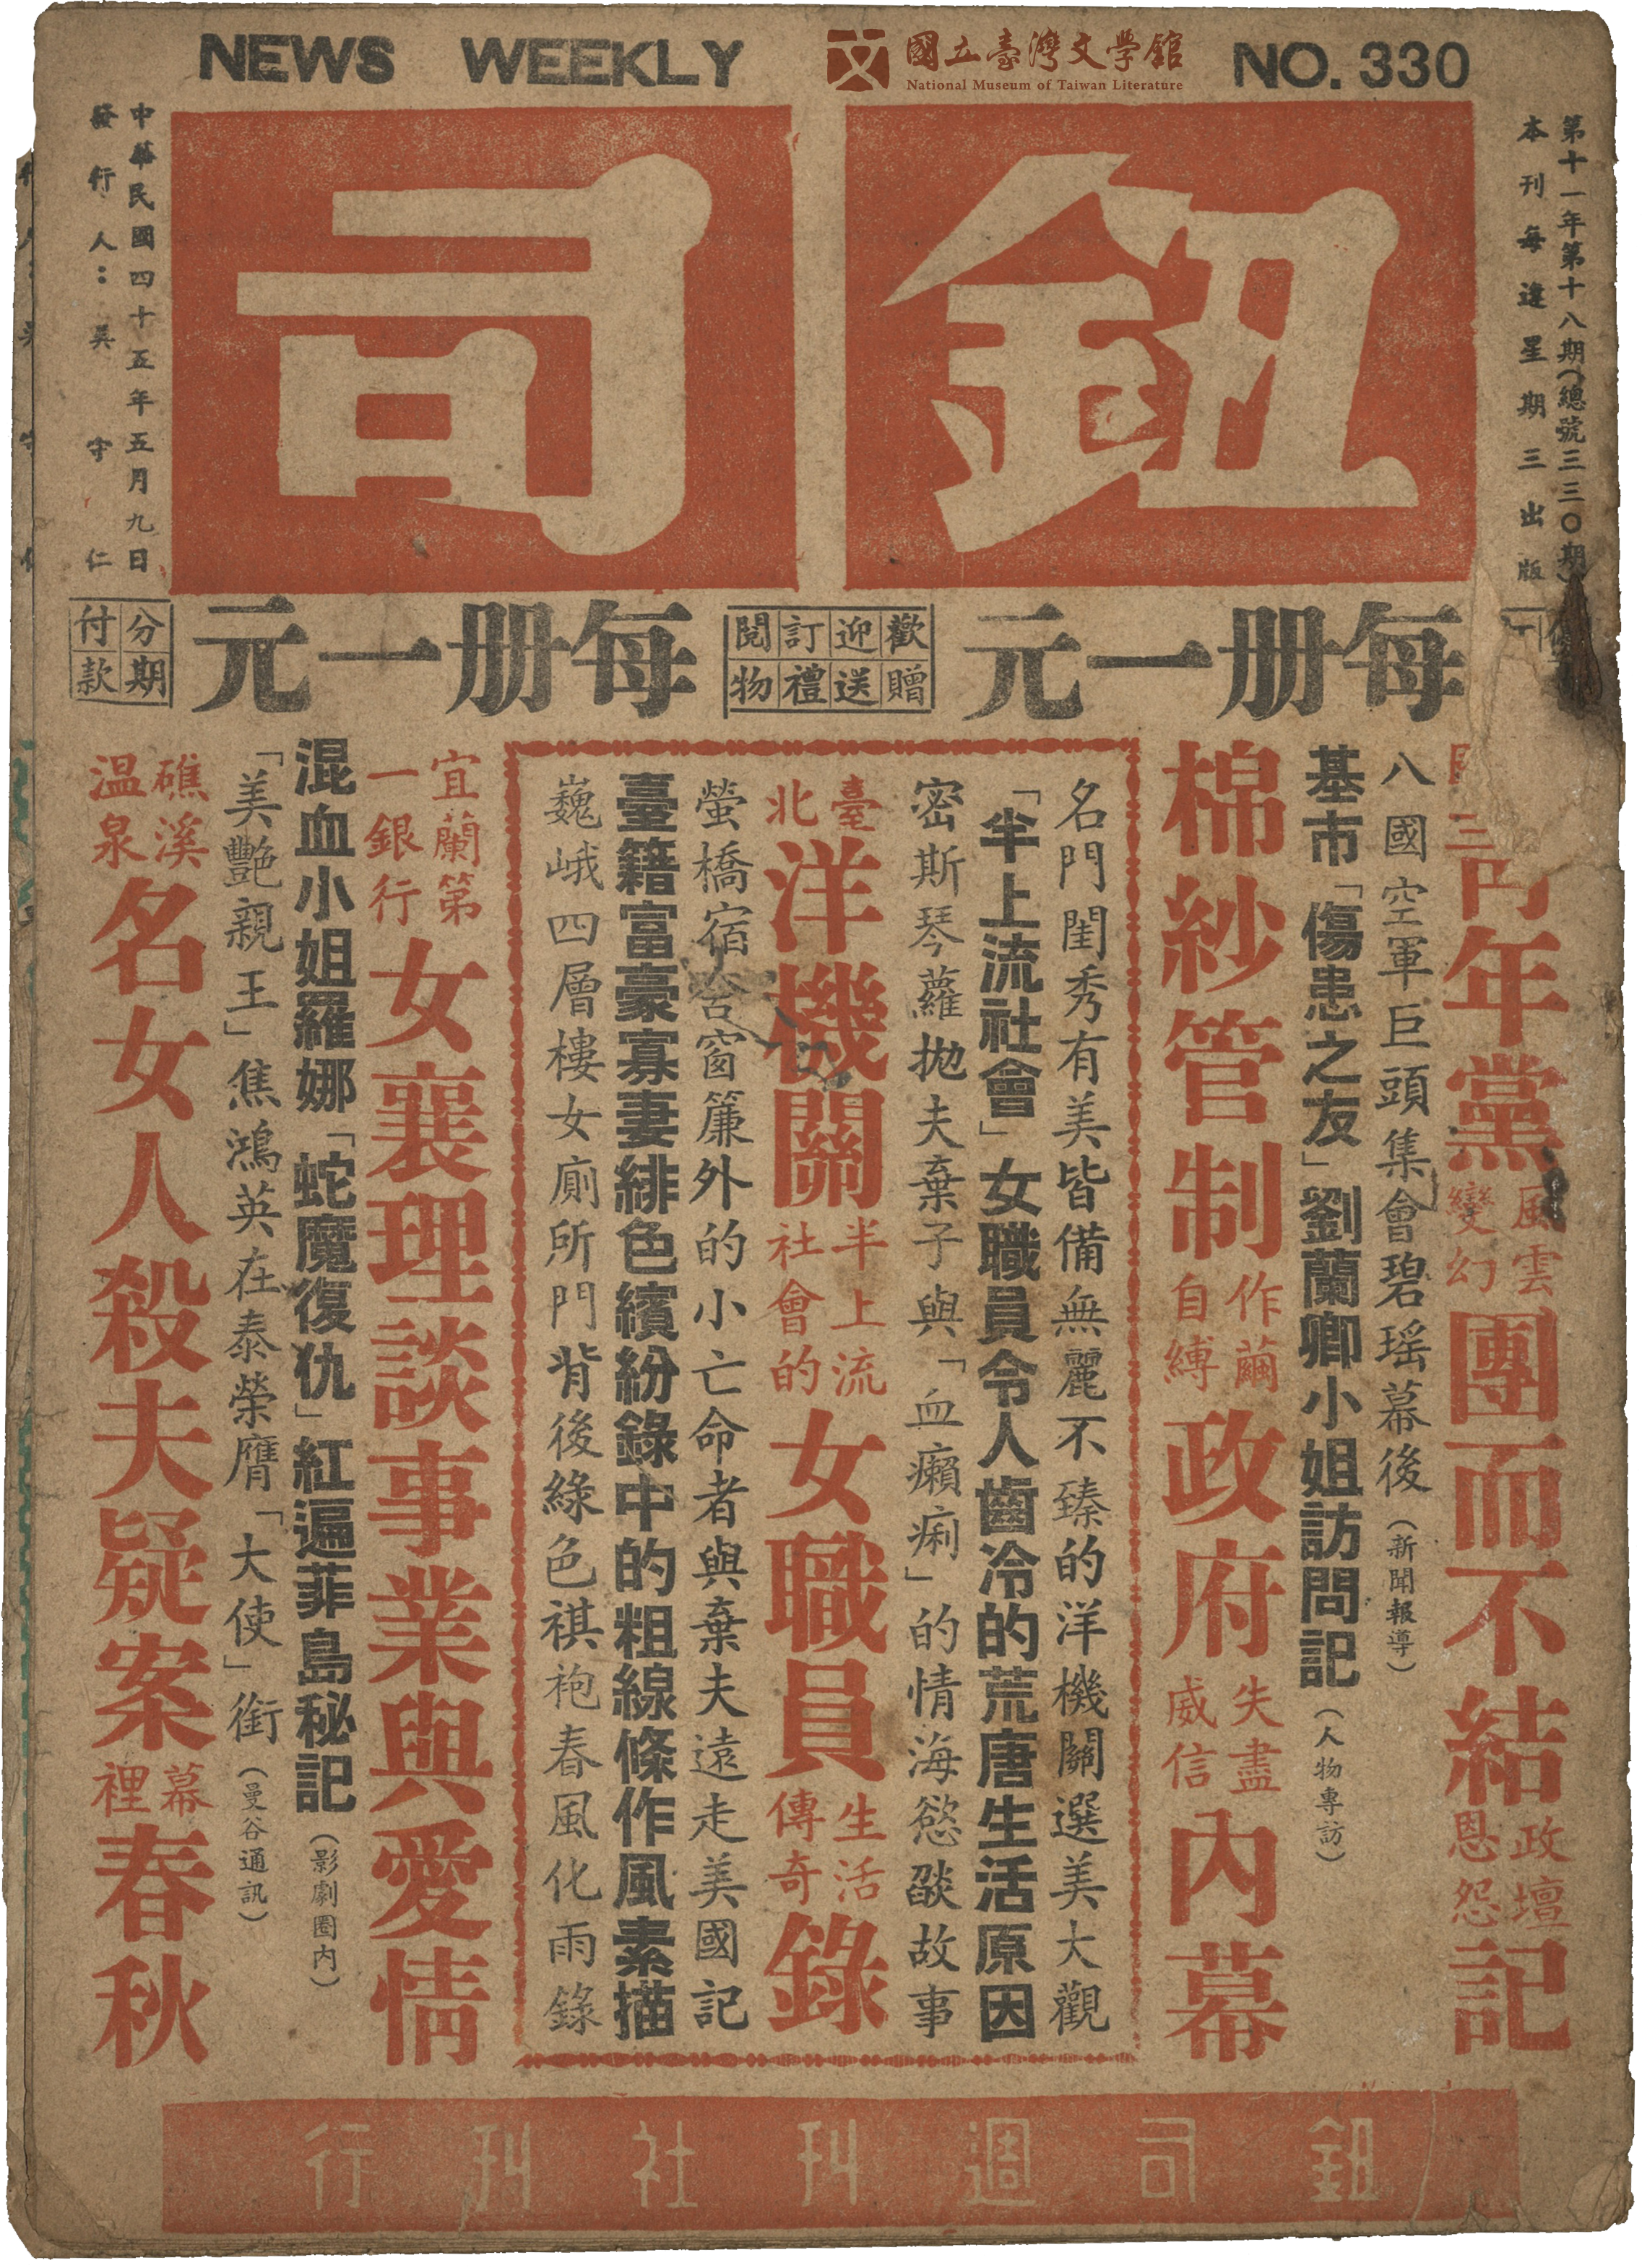 NEWS WEEKLY
國立臺灣文學館
National Museum of Taiwan Literature
NO. 330
鈕司
第十一年第十八期(總號三三〇期)
本刊每逢星期三出版
中華民國四十五年五月九日
發行人：吳守仁
每册一元
歡迎訂閱
贈送禮物
每册一元
分期
付款
年黨風雲變幻團而不結政壇恩怨記
八國空軍巨頭集會碧瑤幕後（新聞報導）
基市「傷患之友」劉蘭卿小姐訪問記（人物專訪）
棉紗管制作繭自縛政府失盡威信內幕
名門閨秀有美皆備無麗不臻的洋機關選美大觀
「半上流社會」女職員令人齒冷的荒唐生活原因
密斯琴蘿拋夫棄子與「血癩痢」的情海慾燄故事
臺北洋機關半上流社會的女職員生活傳奇錄
螢橋宿舍窗簾外的小亡命者與棄夫遠走美國記
臺籍富豪寡妻緋色繽紛錄中的粗線條作風素描
巍峨四層樓女廁所門背後綠色祺袍春風化雨錄
宜蘭第一銀行女襄理談事業與愛情
混血小姐羅娜「蛇魔復仇」紅遍菲島秘記（影劇圈內）
「美艷親王」焦鴻英在泰榮膺「大使」銜（曼谷通訊）
礁溪温泉名女人殺夫疑案幕裡春秋
鈕司週刊社刊行